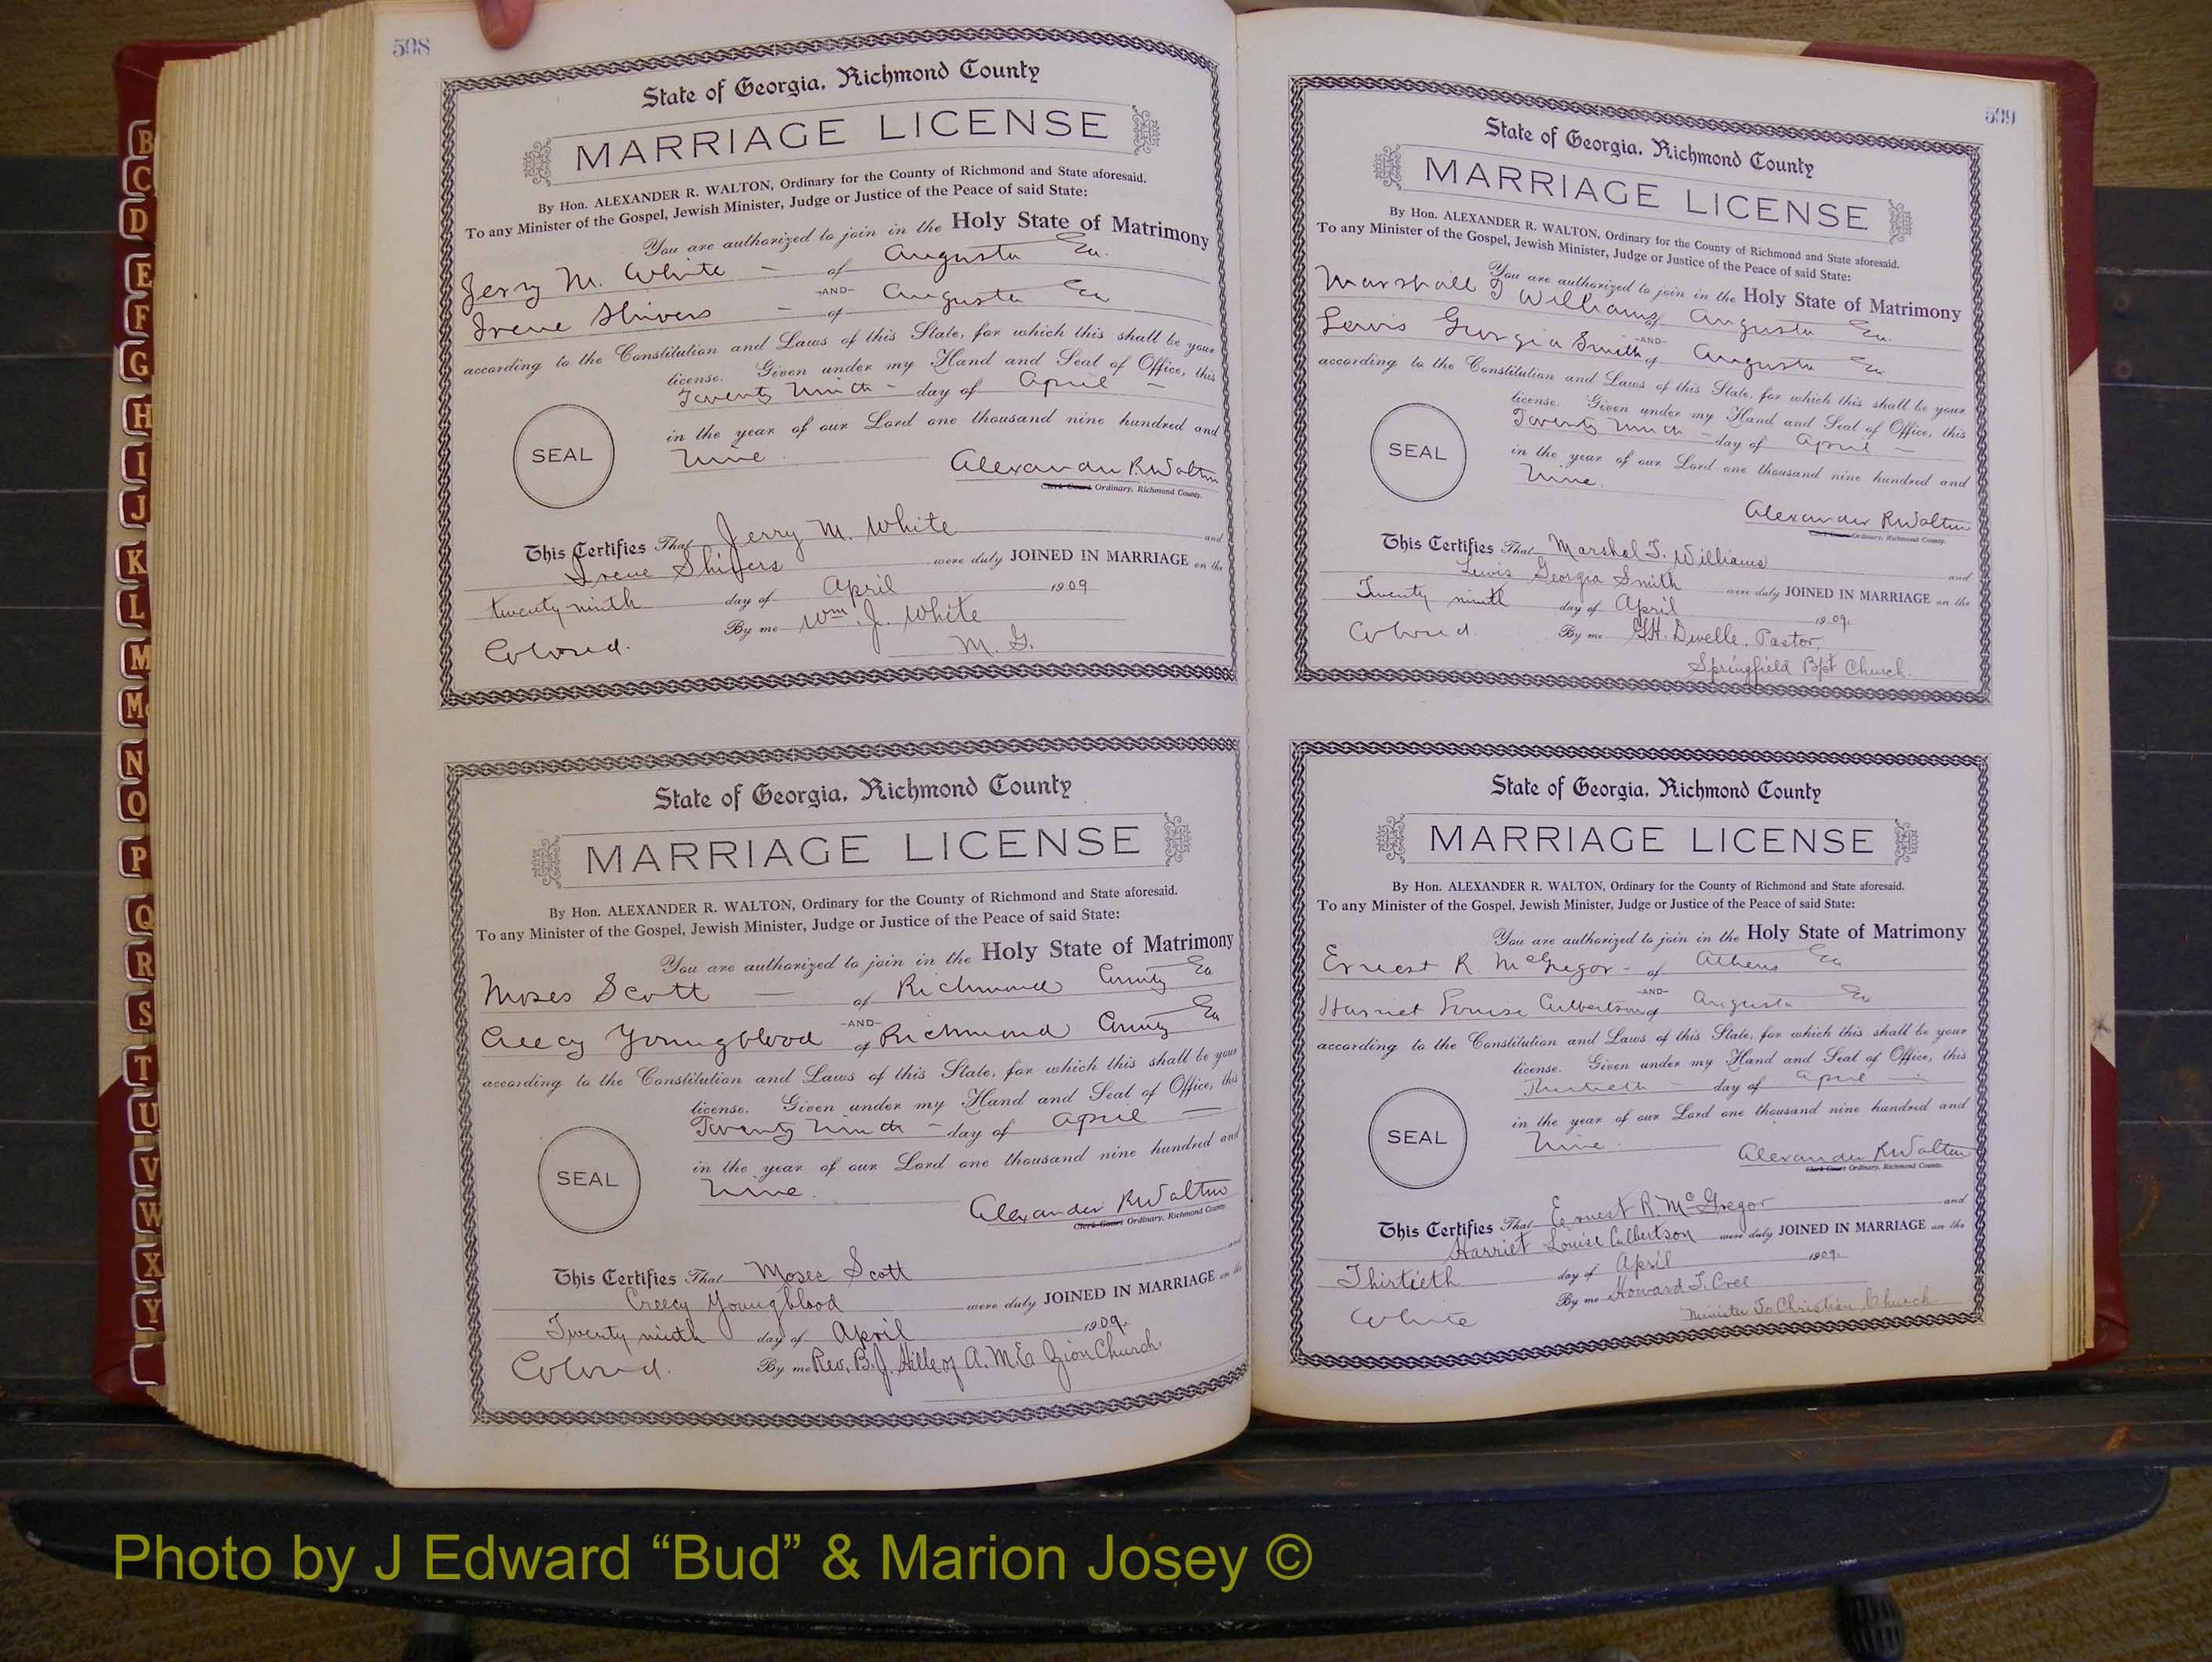 598
State of Georgia, Richmond County
MARRIAGE LICENSE
By Hon. ALEXANDER R. WALTON, Ordinary for the County of Richmond and State aforesaid.
To any Minister of the Gospel, Jewish Minister, Judge or Justice of the Peace of said State:
You are authorized to join in the Holy State of Matrimony
Jerry M. White - of Augusta Ga.
-AND-
Irene Shivers - of Augusta Ga
according to the Constitution and Laws of this State, for which this shall be your
license. Given under my Hand and Seal of Office, this
Twenty Ninth - day of April -
in the year of our Lord one thousand nine hundred and
SEAL
Nine.
Alexander R Walton
Clerk Court Ordinary, Richmond County.
This Certifies That Jerry M. White and
Irene Shivers were duly JOINED IN MARRIAGE on the
twenty ninth day of April 1909
By me Wm. J. White
Colored. M. G.
State of Georgia, Richmond County
MARRIAGE LICENSE
By Hon. ALEXANDER R. WALTON, Ordinary for the County of Richmond and State aforesaid.
To any Minister of the Gospel, Jewish Minister, Judge or Justice of the Peace of said State:
You are authorized to join in the Holy State of Matrimony
Moses Scott - of Richmond County Ga
-AND-
Creecy Youngblood of Richmond County Ga
according to the Constitution and Laws of this State, for which this shall be your
license. Given under my Hand and Seal of Office, this
Twenty Ninth - day of April -
in the year of our Lord one thousand nine hundred and
SEAL
Nine.
Alexander R Walton
Clerk Court Ordinary, Richmond County.
This Certifies That Moses Scott and
Creecy Youngblood were duly JOINED IN MARRIAGE on the
Twenty ninth day of April 1909.
Colored. By me Rev. B. J. Hill of A. M. E Zion Church
599
State of Georgia, Richmond County
MARRIAGE LICENSE
By Hon. ALEXANDER R. WALTON, Ordinary for the County of Richmond and State aforesaid.
To any Minister of the Gospel, Jewish Minister, Judge or Justice of the Peace of said State:
You are authorized to join in the Holy State of Matrimony
Marshall T Williams of Augusta Ga.
-AND-
Lewis Georgia Smith of Augusta Ga
according to the Constitution and Laws of this State, for which this shall be your
license. Given under my Hand and Seal of Office, this
Twenty Ninth - day of April -
in the year of our Lord one thousand nine hundred and
SEAL
Nine.
Alexander R Walton
Clerk Court Ordinary, Richmond County.
This Certifies That Marshal T. Williams and
Lewis Georgia Smith were duly JOINED IN MARRIAGE on the
Twenty ninth day of April 1909.
Colored. By me G.H. Dwelle, Pastor,
Springfield Bpt Church.
State of Georgia, Richmond County
MARRIAGE LICENSE
By Hon. ALEXANDER R. WALTON, Ordinary for the County of Richmond and State aforesaid.
To any Minister of the Gospel, Jewish Minister, Judge or Justice of the Peace of said State:
You are authorized to join in the Holy State of Matrimony
Ernest R. McGregor - of Athens Ga
-AND-
Harriet Louise Culbertson of Augusta Ga
according to the Constitution and Laws of this State, for which this shall be your
license. Given under my Hand and Seal of Office, this
Thirtieth - day of April -
in the year of our Lord one thousand nine hundred and
SEAL
Nine.
Alexander R Walton
Clerk Court Ordinary, Richmond County.
This Certifies That Ernest R. McGregor and
Harriet Louise Culbertson were duly JOINED IN MARRIAGE on the
Thirtieth day of April 1909.
By me Howard T. Cree
White Minister Christian Church.
B
C
D
E
F
G
H
I
J
K
L
M
Mc
N
O
P
Q
R
S
T
U
V
W
X
Y
Photo by J Edward “Bud” & Marion Josey ©